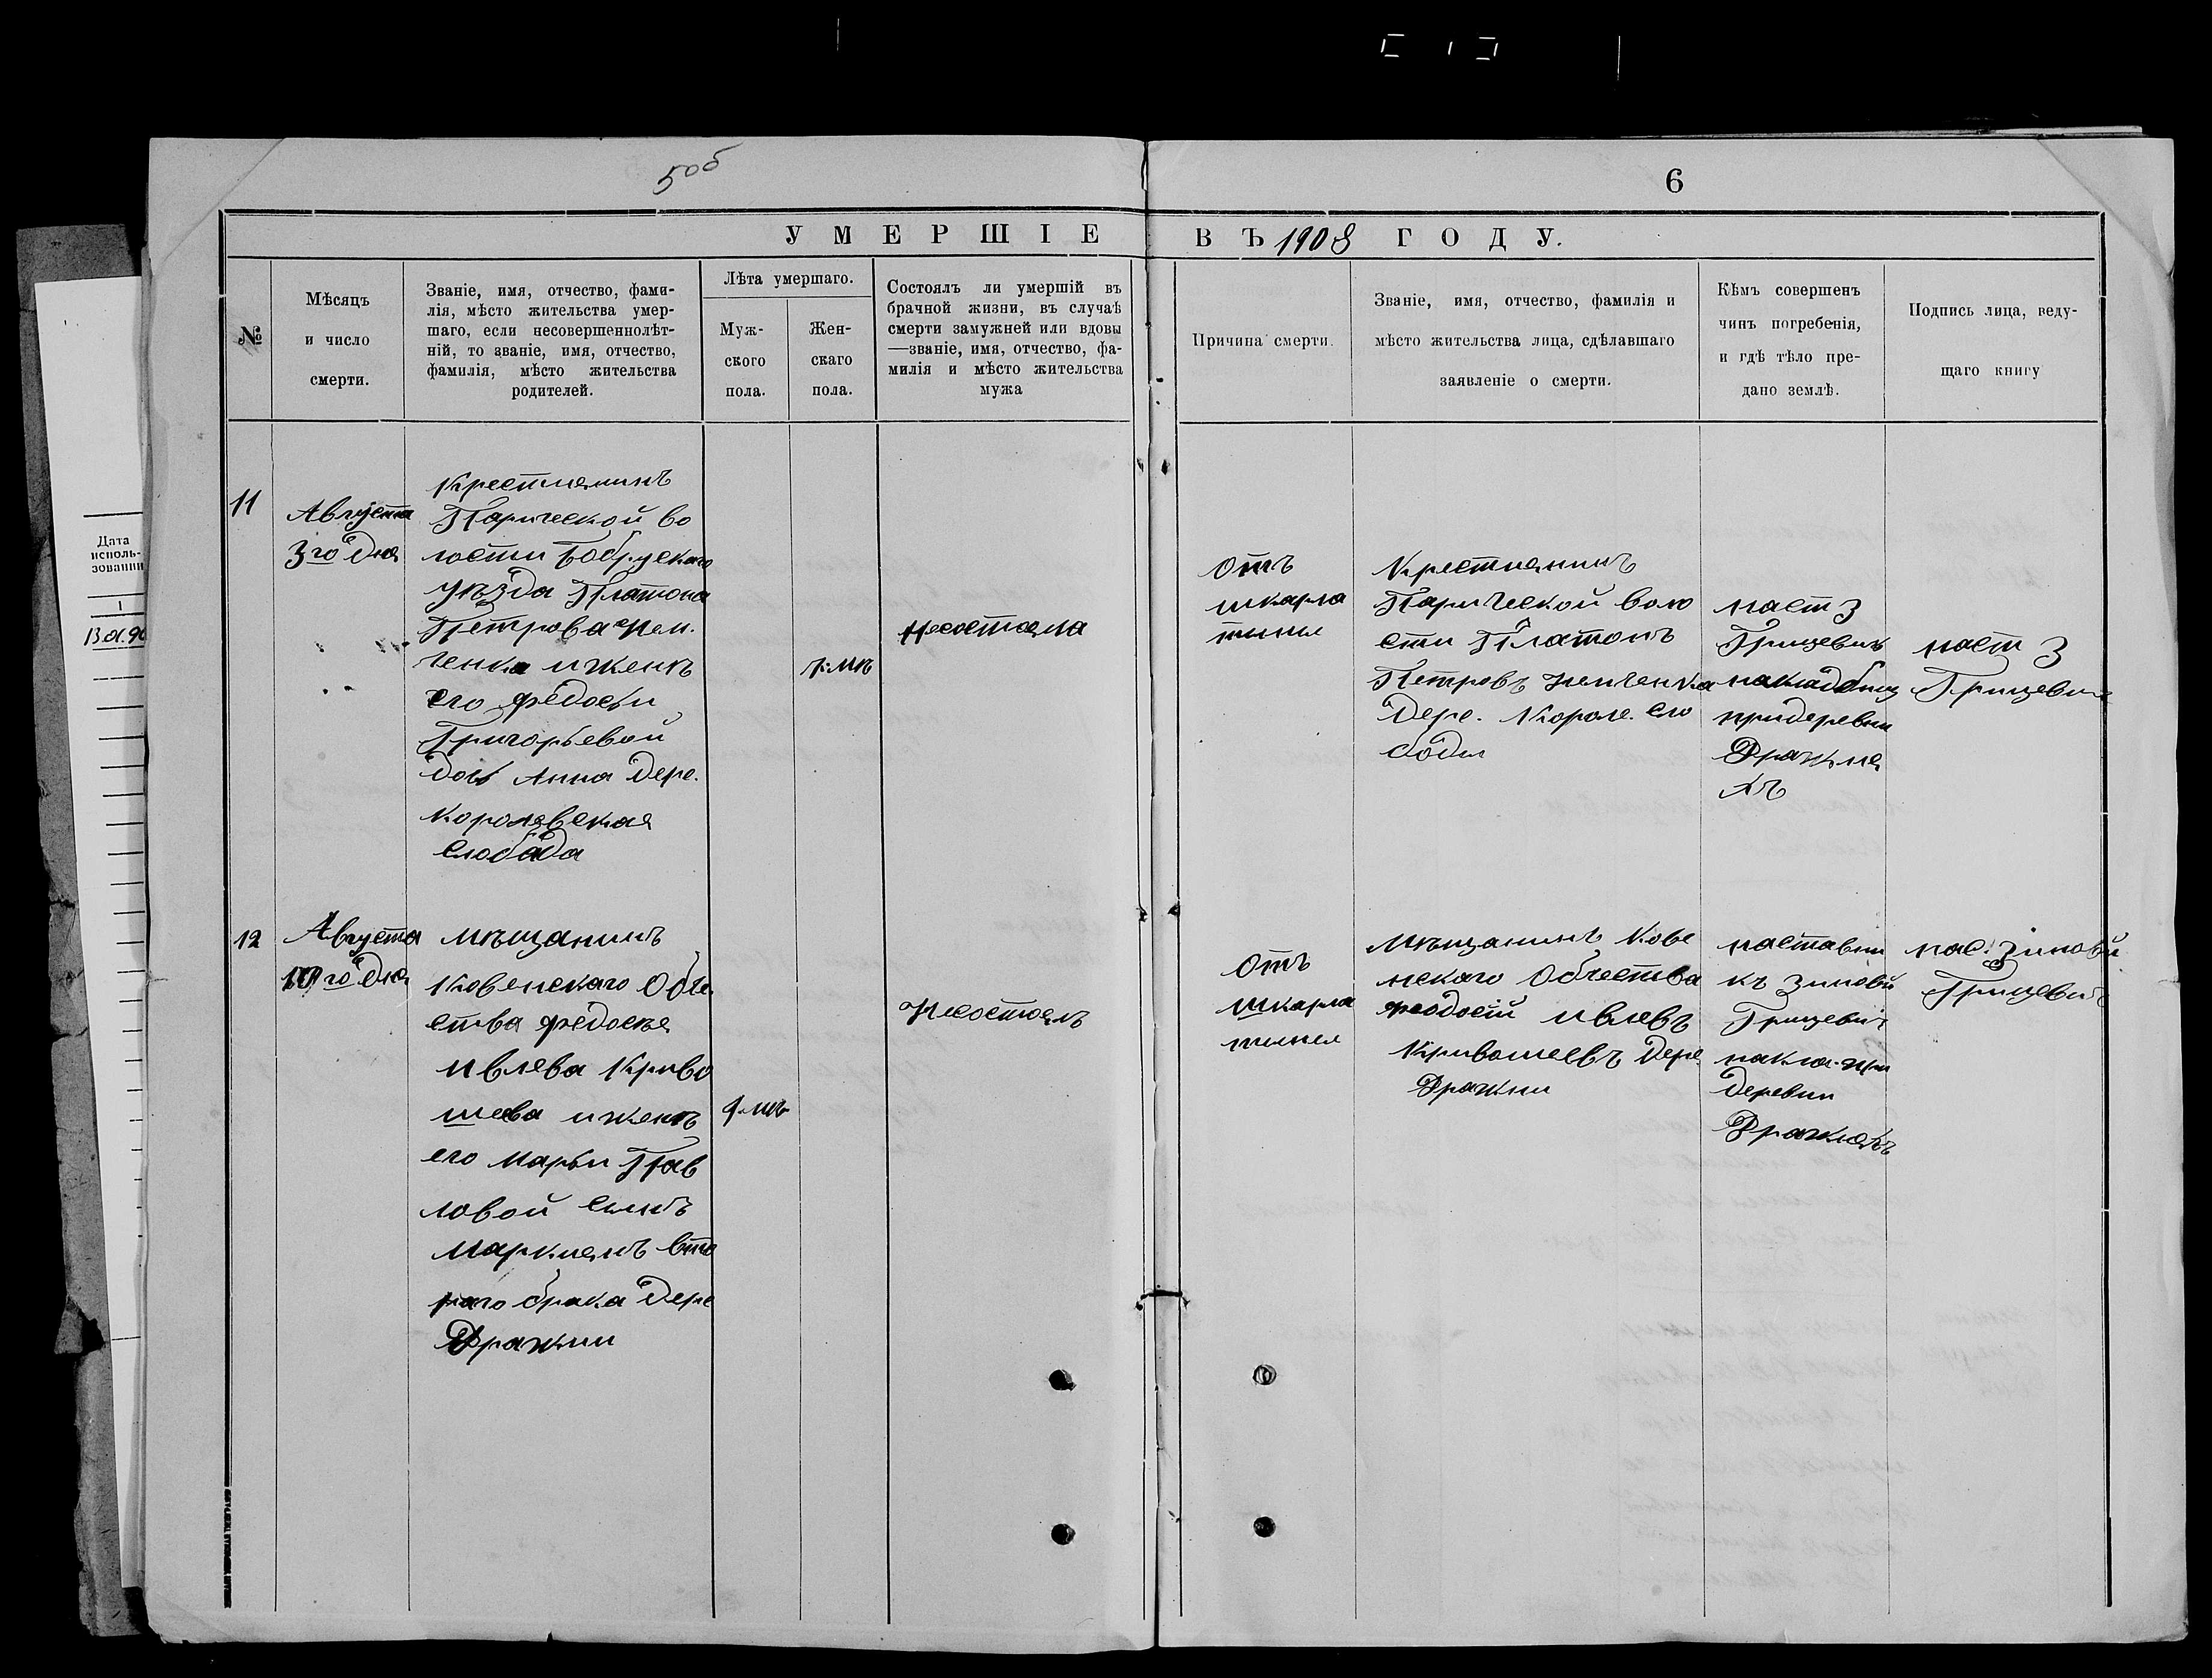 5об
6
УМЕРШІЕ ВЪ 1908 ГОДУ.
№
Мѣсяцъ
и число
смерти.
Званіе, имя, отчество, фами-
лія, мѣсто жительства умер-
шаго, если несовершеннолѣт-
ній, то званіе, имя, отчество,
фамилія, мѣсто жительства
родителей.
Лѣта умершаго.
Муж-
ского
пола.
Жен-
скаго
пола.
Состоялъ ли умершій въ
брачной жизни, въ случаѣ
смерти замужней или вдовы
—званіе, имя, отчество, фа-
милія и мѣсто жительства
мужа
Причина смерти.
Званіе, имя, отчество, фамилія и
мѣсто жительства лица, сдѣлавшаго
заявленіе о смерти.
Кѣмъ совершенъ
чинъ погребенія,
и гдѣ тѣло пре-
дано землѣ.
Подпись лица, веду-
щаго книгу
11
Августа
3го дня
Крестианинъ
Паричской во
лости Бобрускаго
уѣзда Платона
Петрова
ченка и женѣ
его Федосьи
Григорьевой
дочь Анна дере.
Королевская
Слобада
несостояла
отъ
шкарла
тины
Крестианинъ
Парической воло
сти Платонъ
Петровъ
Дере. Короле. сло
боды
наст З
Грицевич
накладбищ
придеревни
Дражня
хъ
наст З
Грицевич
12
Августа
10го дня
мѣщанинъ
Ковенскаго Обще
ства Федосѣя
Ивлева Криво
шева и женѣ
его Марьи Пав
ловой сынъ
Маркианъ вто
раго брака дере
Дражни
несостоялъ
отъ
шкарла
тины
мѣщанинъ Кове
нскаго Обчества
Феодосій Ивлевъ
Кривошеевъ дере
Дражни
наставни
къ Зиновій
Грицевич
накла. при
деревни
Дражняхъ
нас. Зиновій
Грицевич
Дата
исполь-
зования
1
13.01.90